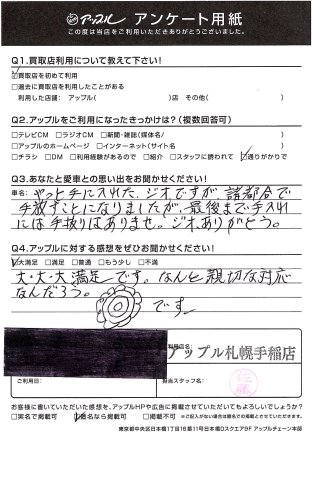 アップル アンケート用紙
この度は当店をご利用いただきありがとうございました。
Q1.買取店利用について教えて下さい!
☑買取店を初めて利用
□過去に買取店を利用したことがある
利用した店舗: アップル( )店 その他( )
Q2.アップルをご利用になったきっかけは?(複数回答可)
□テレビCM □ラジオCM □新聞・雑誌(媒体名/ )
□アップルのホームページ □インターネット(サイト名 )
□チラシ □DM □利用経験があるので □紹介 □スタッフに誘われて ☑通りがかりで
Q3.あなたと愛車との思い出をお聞かせください!
車名: やっと手に入れた、ジオですが、諸都合で
手放すことになりましたが、最後まで手入れ
には手抜りはありませ。ジオありがとう。
Q4.アップルに対する感想をぜひお聞かせください!
☑大満足 □満足 □普通 □もう少し □不満
大・大・大満足です。なんと親切な対応
なんだろう。
です
利用店名:
アップル札幌手稲店
ご利用日: 担当スタッフ名:
佐藤
お客様に書いていただいた感想を、アップルHPや広告に掲載させていただいてもよろしいでしょうか?
□実名で掲載可 ☑匿名なら掲載可 □掲載不可 ※ご記入がない場合は匿名での掲載とさせていただきます。
東京都中央区日本橋1丁目16番11号日本橋Dスクエア9F アップルチェーン本部